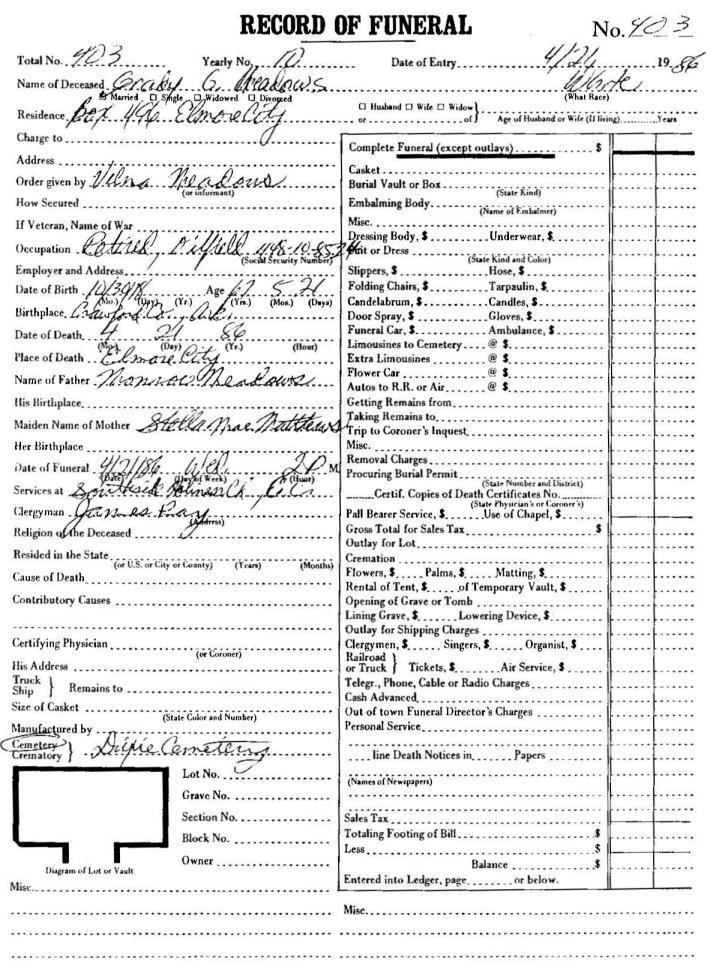 RECORD OF FUNERAL
No. 403
Total No. 403 Yearly No. 10 Date of Entry 4/21 1986
Name of Deceased Grady G. Meadows White
Married Single Widowed Divorced (What Race)
Residence Box 496 Elmore City
Husband Wife Widow or of Age of Husband or Wife (If living) Years
Charge to
Address
Order given by Velma Meadows
(or informant)
How Secured
If Veteran, Name of War
Occupation Retired, Oilfield
(Social Security Number)
Employer and Address
Date of Birth Age 67 5 21
(Mo.) (Day) (Yr.) (Yrs.) (Mos.) (Days)
Birthplace Crawford Co., Ark.
Date of Death 4 21 86
(Mo.) (Day) (Yr.) (Hour)
Place of Death Elmore City
Name of Father Monroe Meadows
His Birthplace
Maiden Name of Mother Stella Mae Matthews
Her Birthplace
Date of Funeral Wed. 2 P M
(Date) (Day of Week) (Hour)
Services at Southside E.C.
Clergyman James Ray
(Address)
Religion of the Deceased
Resided in the State
(or U.S. or City or County) (Years) (Months)
Cause of Death
Contributory Causes
Certifying Physician
(or Coroner)
His Address
Truck Ship } Remains to
Size of Casket
(State Color and Number)
Manufactured by
Cemetery Crematory } Cemetery
Lot No.
Grave No.
Section No.
Block No.
Owner
Diagram of Lot or Vault
Misc.
Complete Funeral (except outlays) $
Casket
Burial Vault or Box
(State Kind)
Embalming Body
(Name of Embalmer)
Misc.
Dressing Body, $ Underwear, $
Suit or Dress
(State Kind and Color)
Slippers, $ Hose, $
Folding Chairs, $ Tarpaulin, $
Candelabrum, $ Candles, $
Door Spray, $ Gloves, $
Funeral Car, $ Ambulance, $
Limousines to Cemetery @ $
Extra Limousines @ $
Flower Car @ $
Autos to R.R. or Air @ $
Getting Remains from
Taking Remains to
Trip to Coroner's Inquest
Misc.
Removal Charges
Procuring Burial Permit
(State Number and District)
Certif. Copies of Death Certificates No.
(State Physician's or Coroner's)
Pall Bearer Service, $ Use of Chapel, $
Gross Total for Sales Tax $
Outlay for Lot
Cremation
Flowers, $ Palms, $ Matting, $
Rental of Tent, $ of Temporary Vault, $
Opening of Grave or Tomb
Lining Grave, $ Lowering Device, $
Outlay for Shipping Charges
Clergymen, $ Singers, $ Organist, $
Railroad or Truck } Tickets, $ Air Service, $
Telegr., Phone, Cable or Radio Charges
Cash Advanced
Out of town Funeral Director's Charges
Personal Service
line Death Notices in Papers
(Names of Newspapers)
Sales Tax
Totaling Footing of Bill $
Less $
Balance $
Entered into Ledger, page or below.
Misc.